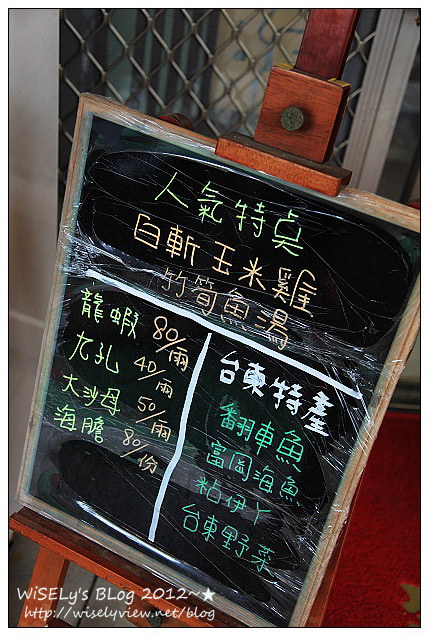 人氣特桌
白斬玉米雞
竹筍魚湯
龍蝦 80/兩
九孔 40/兩
大沙母 50/兩
海膽 80/份
台東特產
翻車魚
富岡海魚
粘伊丫
台東野菜
WiSELy's BLog 2012~★
http://wiselyview.net/blog